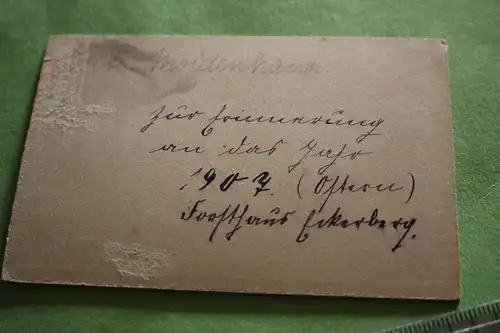 Moldenhauer
zur Erinnerung
an das Jahr
1907. (Ostern)
Forsthaus Eckerberg.